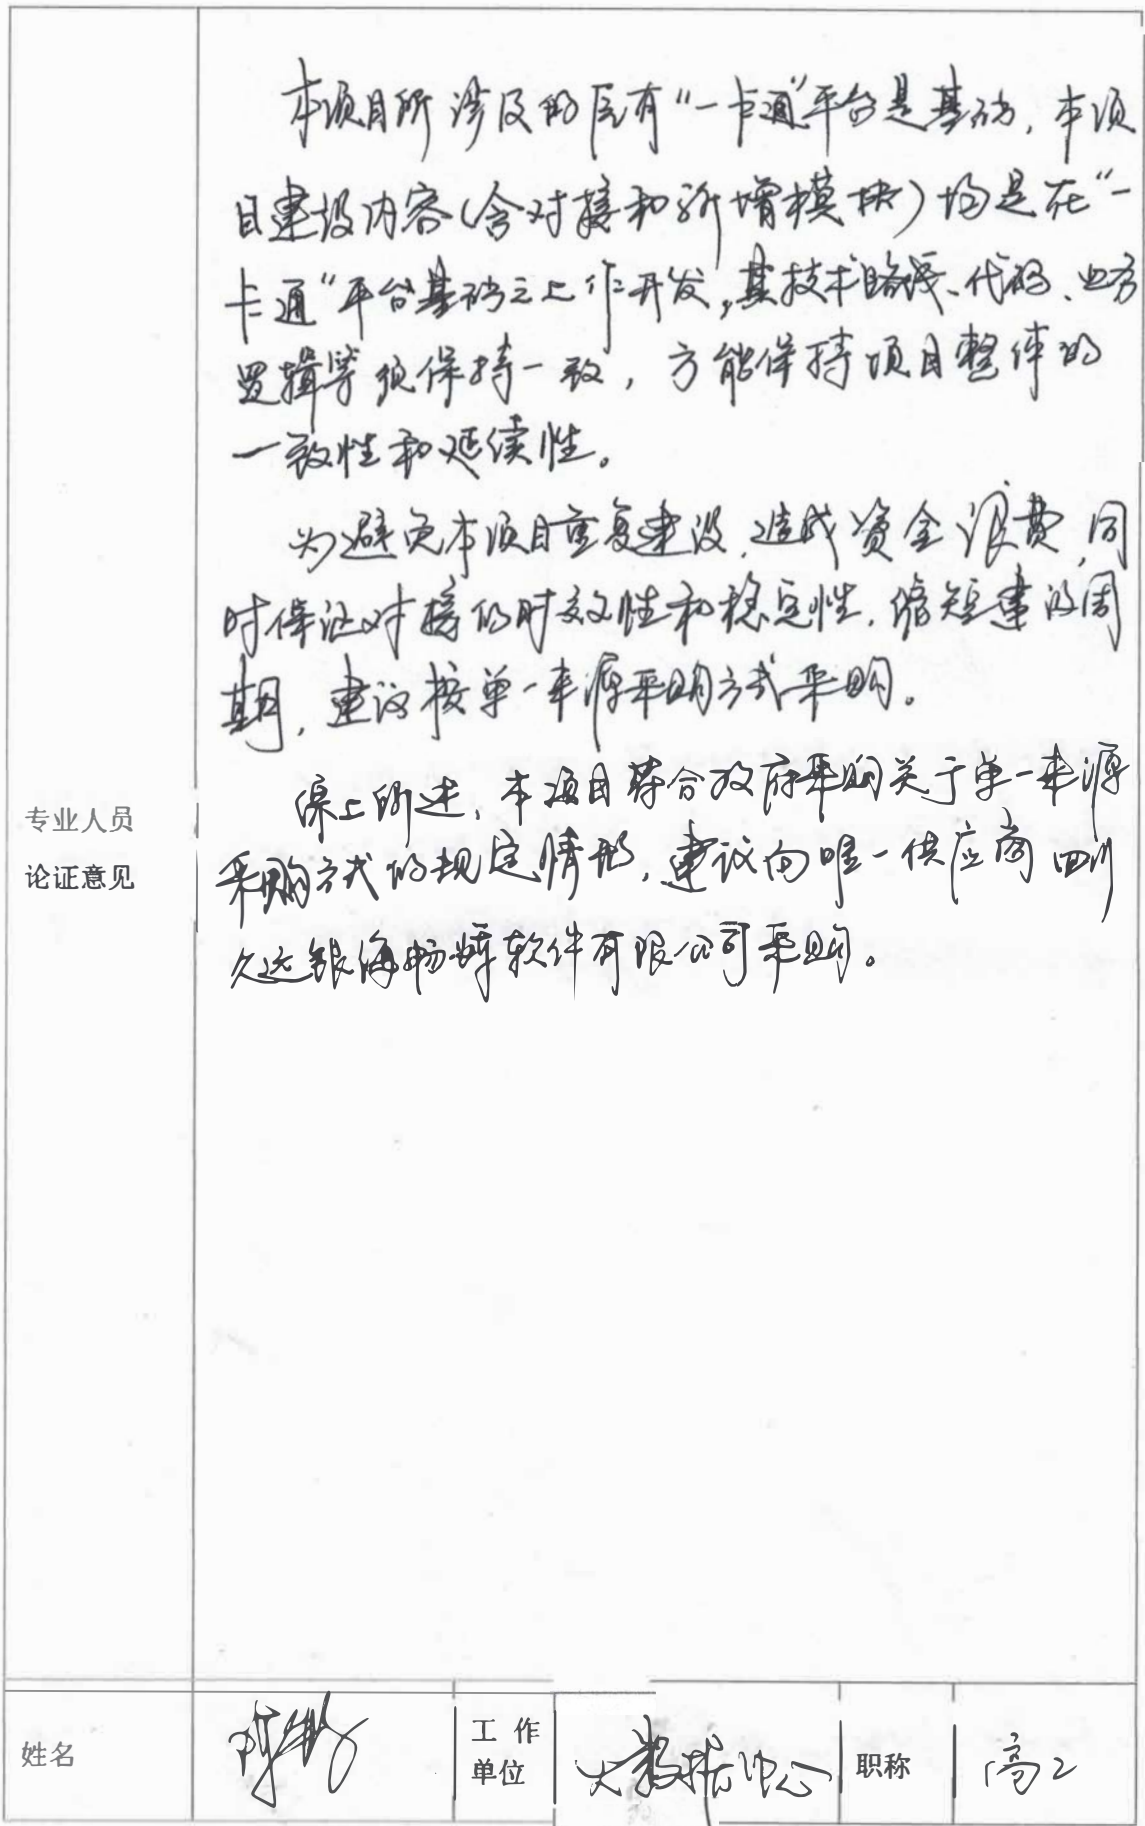 本项目所涉及的原有“一卡通”平台是基础，本项
目建设内容（含对接和新增模块）均是在“一
卡通”平台基础之上作开发，其技术路线、代码、业务
逻辑等须保持一致，方能保持项目整体的
一致性和延续性。
为避免本项目重复建设，造成资金浪费，同
时保证对接的时效性和稳定性，缩短建设周
期，建议按单一来源采购方式采购。
综上所述，本项目符合政府采购关于单一来源
采购方式的规定情形，建议向唯一供应商四川
久远银海畅辉软件有限公司采购。
专业人员
论证意见
姓名
工作
单位
大数据中心
职称
高工